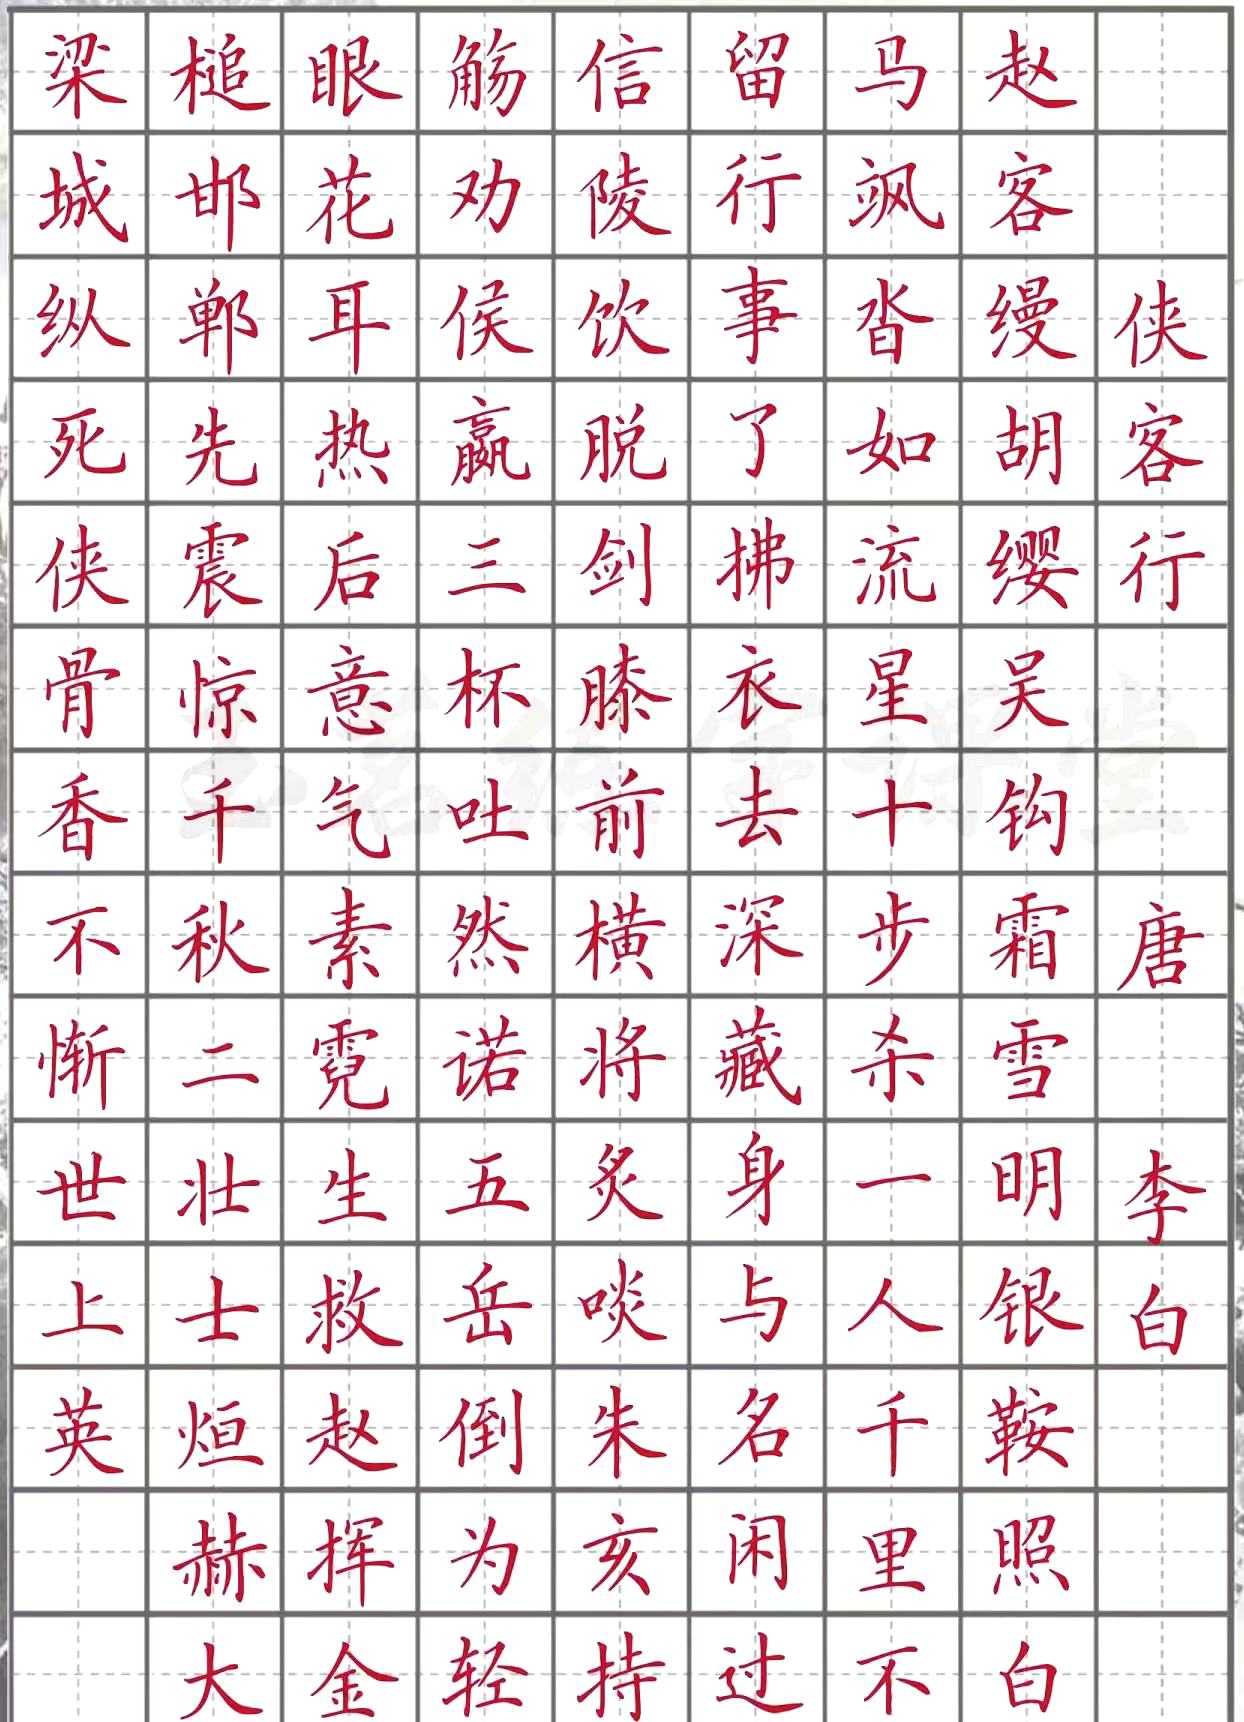 侠客行 唐 李白
赵客缦胡缨吴钩霜雪明银鞍照白
马飒沓如流星十步杀一人千里不
留行事了拂衣去深藏身与名闲过
信陵饮脱剑膝前横将炙啖朱亥持
觞劝侯赢三杯吐然诺五岳倒为轻
眼花耳热后意气素霓生救赵挥金
槌邯郸先震惊千秋二壮士烜赫大
梁城纵死侠骨香不惭世上英